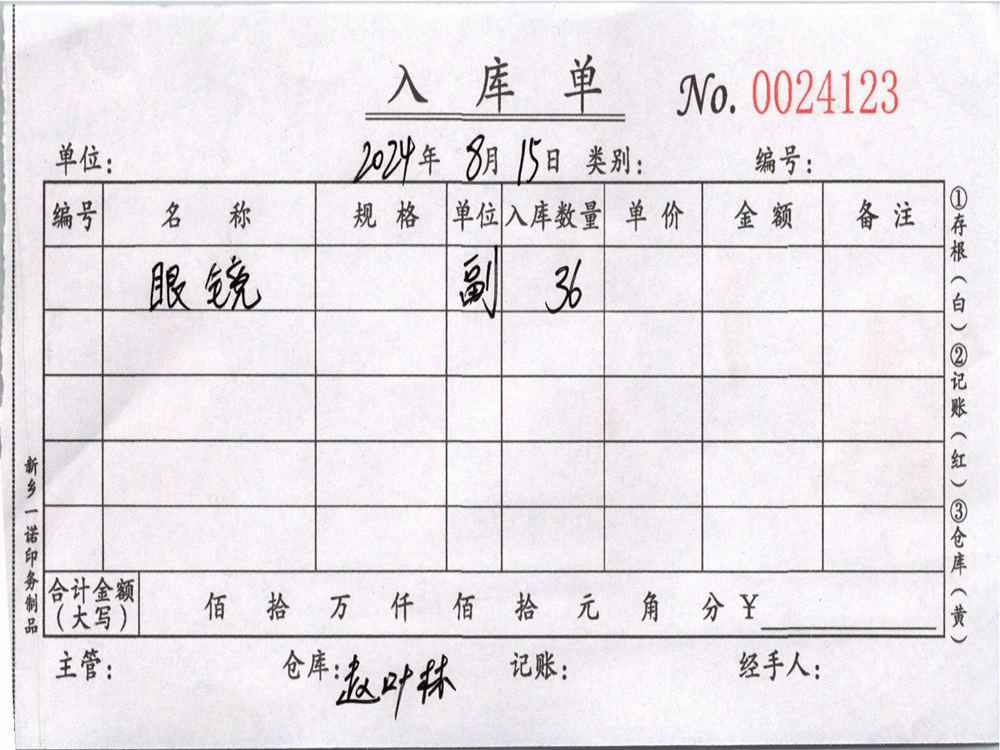 入库单 No. 0024123
单位： 2024年8月15日 类别： 编号：
编号 名称 规格 单位 入库数量 单价 金额 备注
眼镜 副 36
合计金额（大写） 佰拾万仟佰拾元角分￥
主管： 仓库：赵叶林 记账： 经手人：
①存根（白）②记账（红）③仓库（黄）
新乡一诺印务制品